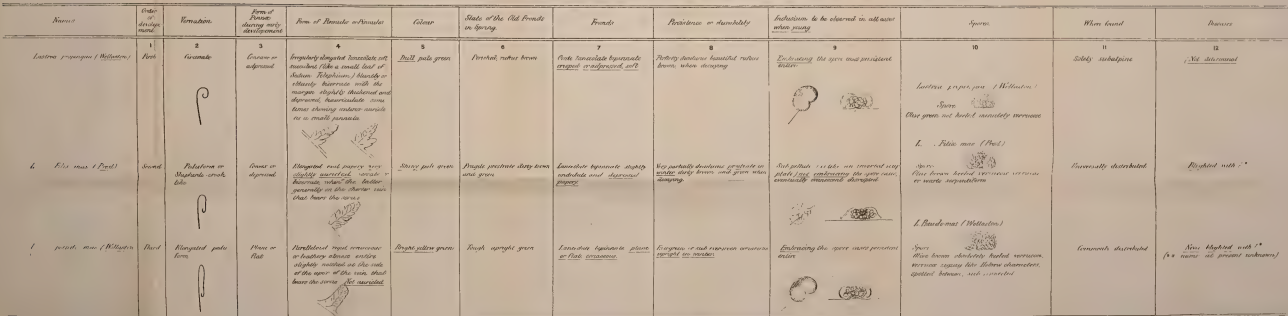 Names
Order of develop-ment.
Vernation
Form of Pinnule during early development
Form of Pinnule or Pinnulae
Colour
State of the Old Fronds in Spring.
Fronds
Persistence or durability
Indusium to be observed in all cases when young
Spores
When found
Diseases
1
2
3
4
5
6
7
8
9
10
11
12
Lastrea propinqua (Wollaston)
First
Circinate
Concave or
adpressed
Irregularly elongated lanceolate soft
succulent (like a small leaf of
Sedum Telephium) bluntly or
obtusely biserrate with the
margin slightly thickened and
depressed, biauriculate some
times shewing anterior auricle
as a small pinnule
Dull pale green
Perished, rufous brown
Ovate lanceolate bipinnate
crisped or adpressed, soft
Perfectly deciduous beautiful rufous
brown, when decaying
Embracing the spore cases persistent
entire
Lastrea propinqua (Wollaston)
Spore
Clear green not keeled minutely verrucose
Solely subalpine
Not determined
L. Filix mas (Presl)
Second
Pediaform or
Shepherds-crook
like
Convex or
depressed
Elongated oval papery very
slightly auricled
generally on the shorter vein
that bears the sorus
Shiny pale green
Fragile prostrate dirty brown
and green
Lanceolate bipinnate slightly
undulate and depressed
papery
Very partially deciduous prostrate in
winter dirty brown and green when
decaying.
plate) not embracing the spore cases,
eventually
L. Filix mas (Presl)
Spore
Olive brown keeled verrucose
or warts
Universally distributed
Blighted with 1*
mas (Wollaston)
Third
Elongated pedia
form
Plane or
Flat
Parallelored rigid coriaceous
or leathery almost entire
slightly notched at the side
of the apex of the vein that
bears the sorus Not auricled
Bright yellow green
Tough upright green
Lanceolate bipinnate plane
or flat coriaceous
Evergreen or sub evergreen coriaceous
upright in winter
Embracing the spore cases persistent
entire
L. Pseudo mas (Wollaston)
Spore
Olive brown obsoletely keeled verrucose,
verrucae zigzag like Hebrew characters,
spotted between, and
Commonly distributed
Never blighted with 1*
(* a name at present unknown)